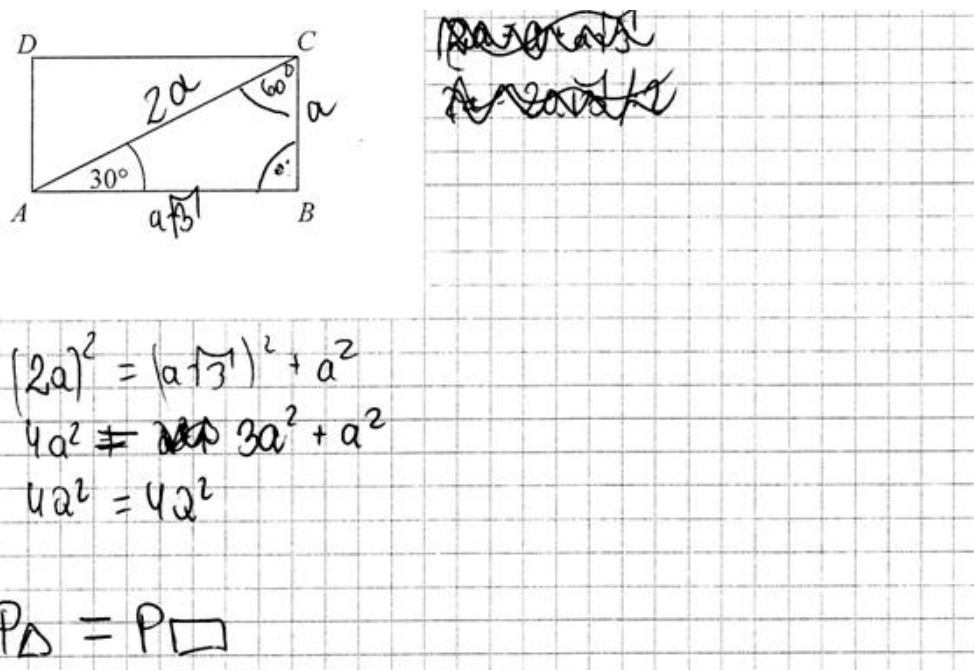 D C
2a 60° a
30°
A a√3 B
(2a)² = (a√3)² + a²
4a² = 3a² + a²
4a² = 4a²
P△ = P▭